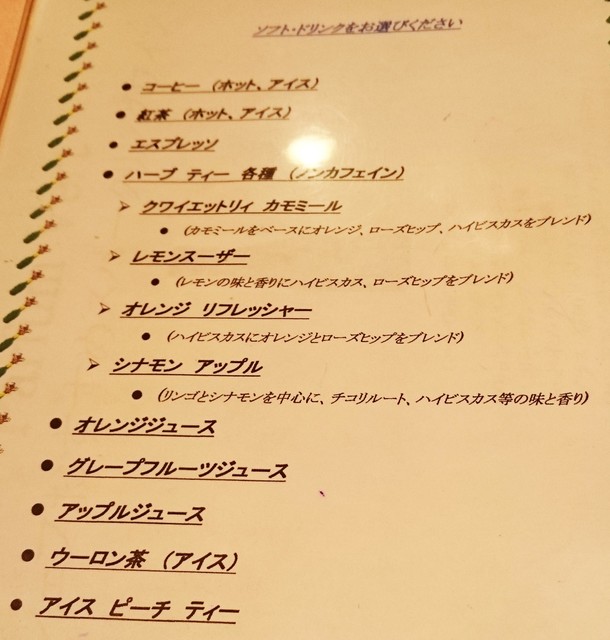 ソフト・ドリンクをお選びください
● コーヒー (ホット、アイス)
● 紅茶 (ホット、アイス)
● エスプレッソ
● ハーブ ティー 各種 (ノンカフェイン)
➢ クワイエットリィ カモミール
● (カモミールをベースにオレンジ、ローズヒップ、ハイビスカスをブレンド)
➢ レモンスーザー
● (レモンの味と香りにハイビスカス、ローズヒップをブレンド)
➢ オレンジ リフレッシャー
● (ハイビスカスにオレンジとローズヒップをブレンド)
➢ シナモン アップル
● (リンゴとシナモンを中心に、チコリルート、ハイビスカス等の味と香り)
● オレンジジュース
● グレープフルーツジュース
● アップルジュース
● ウーロン茶 (アイス)
● アイス ピーチ ティー